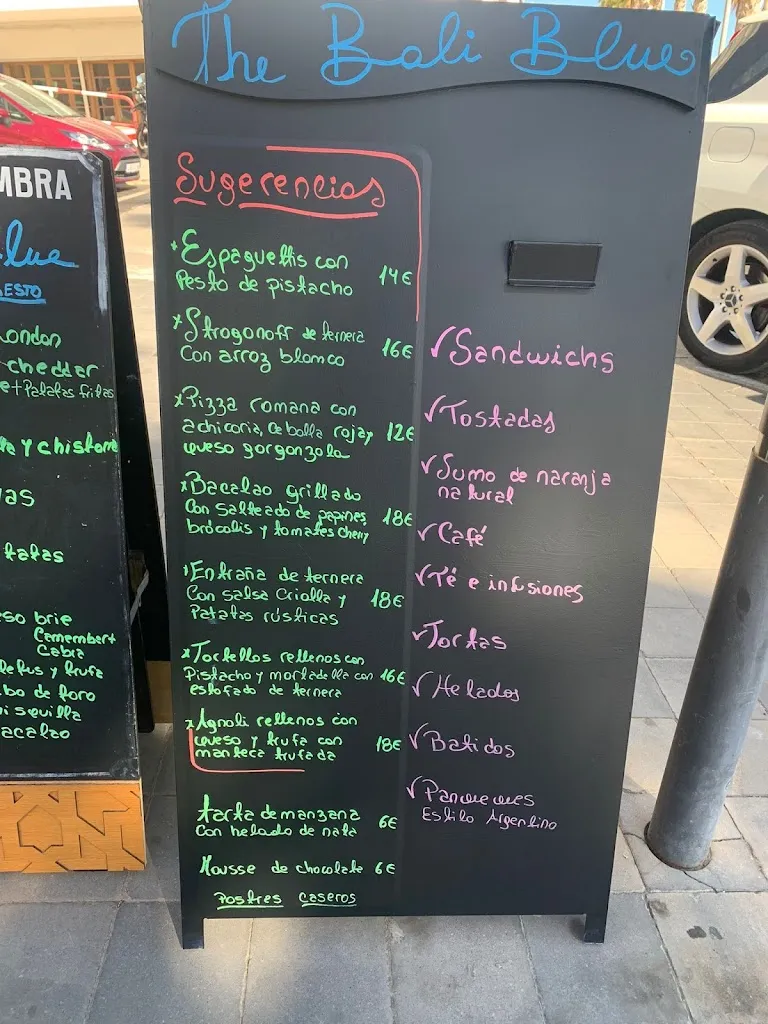 The Bali Blue
Sugerencias
Espaguettis con
Pesto de pistacho 14€
Strogonoff de ternera
Con arroz blanco 16€
Pizza romana con
achicoria, cebolla roja y
queso gorgonzola 12€
Bacalao grillado
Con salteado de papines,
brócolis y tomates cherry 18€
Entraña de ternera
Con salsa Criolla y
Patatas rústicas 18€
Tortellos rellenos con
Pistacho y mortadella con
estofado de ternera 16€
Agnoli rellenos con
queso y trufa con
manteca trufada 18€
tarta de manzana
Con helado de nata 6€
Mousse de chocolate 6€
Postres caseros
✓Sandwichs
✓Tostadas
✓Sumo de naranja
natural
✓Café
✓Té e infusiones
✓Tortas
✓Helados
✓Batidos
✓Panqueques
Estilo Argentino
MBRA
lue
ESTO
ondon
cheddar
e+Patatas fritas
a y chistorra
as
tatas
eso brie
Camembert
Cabra
y trufa
bo de toro
i sevilla
acalao